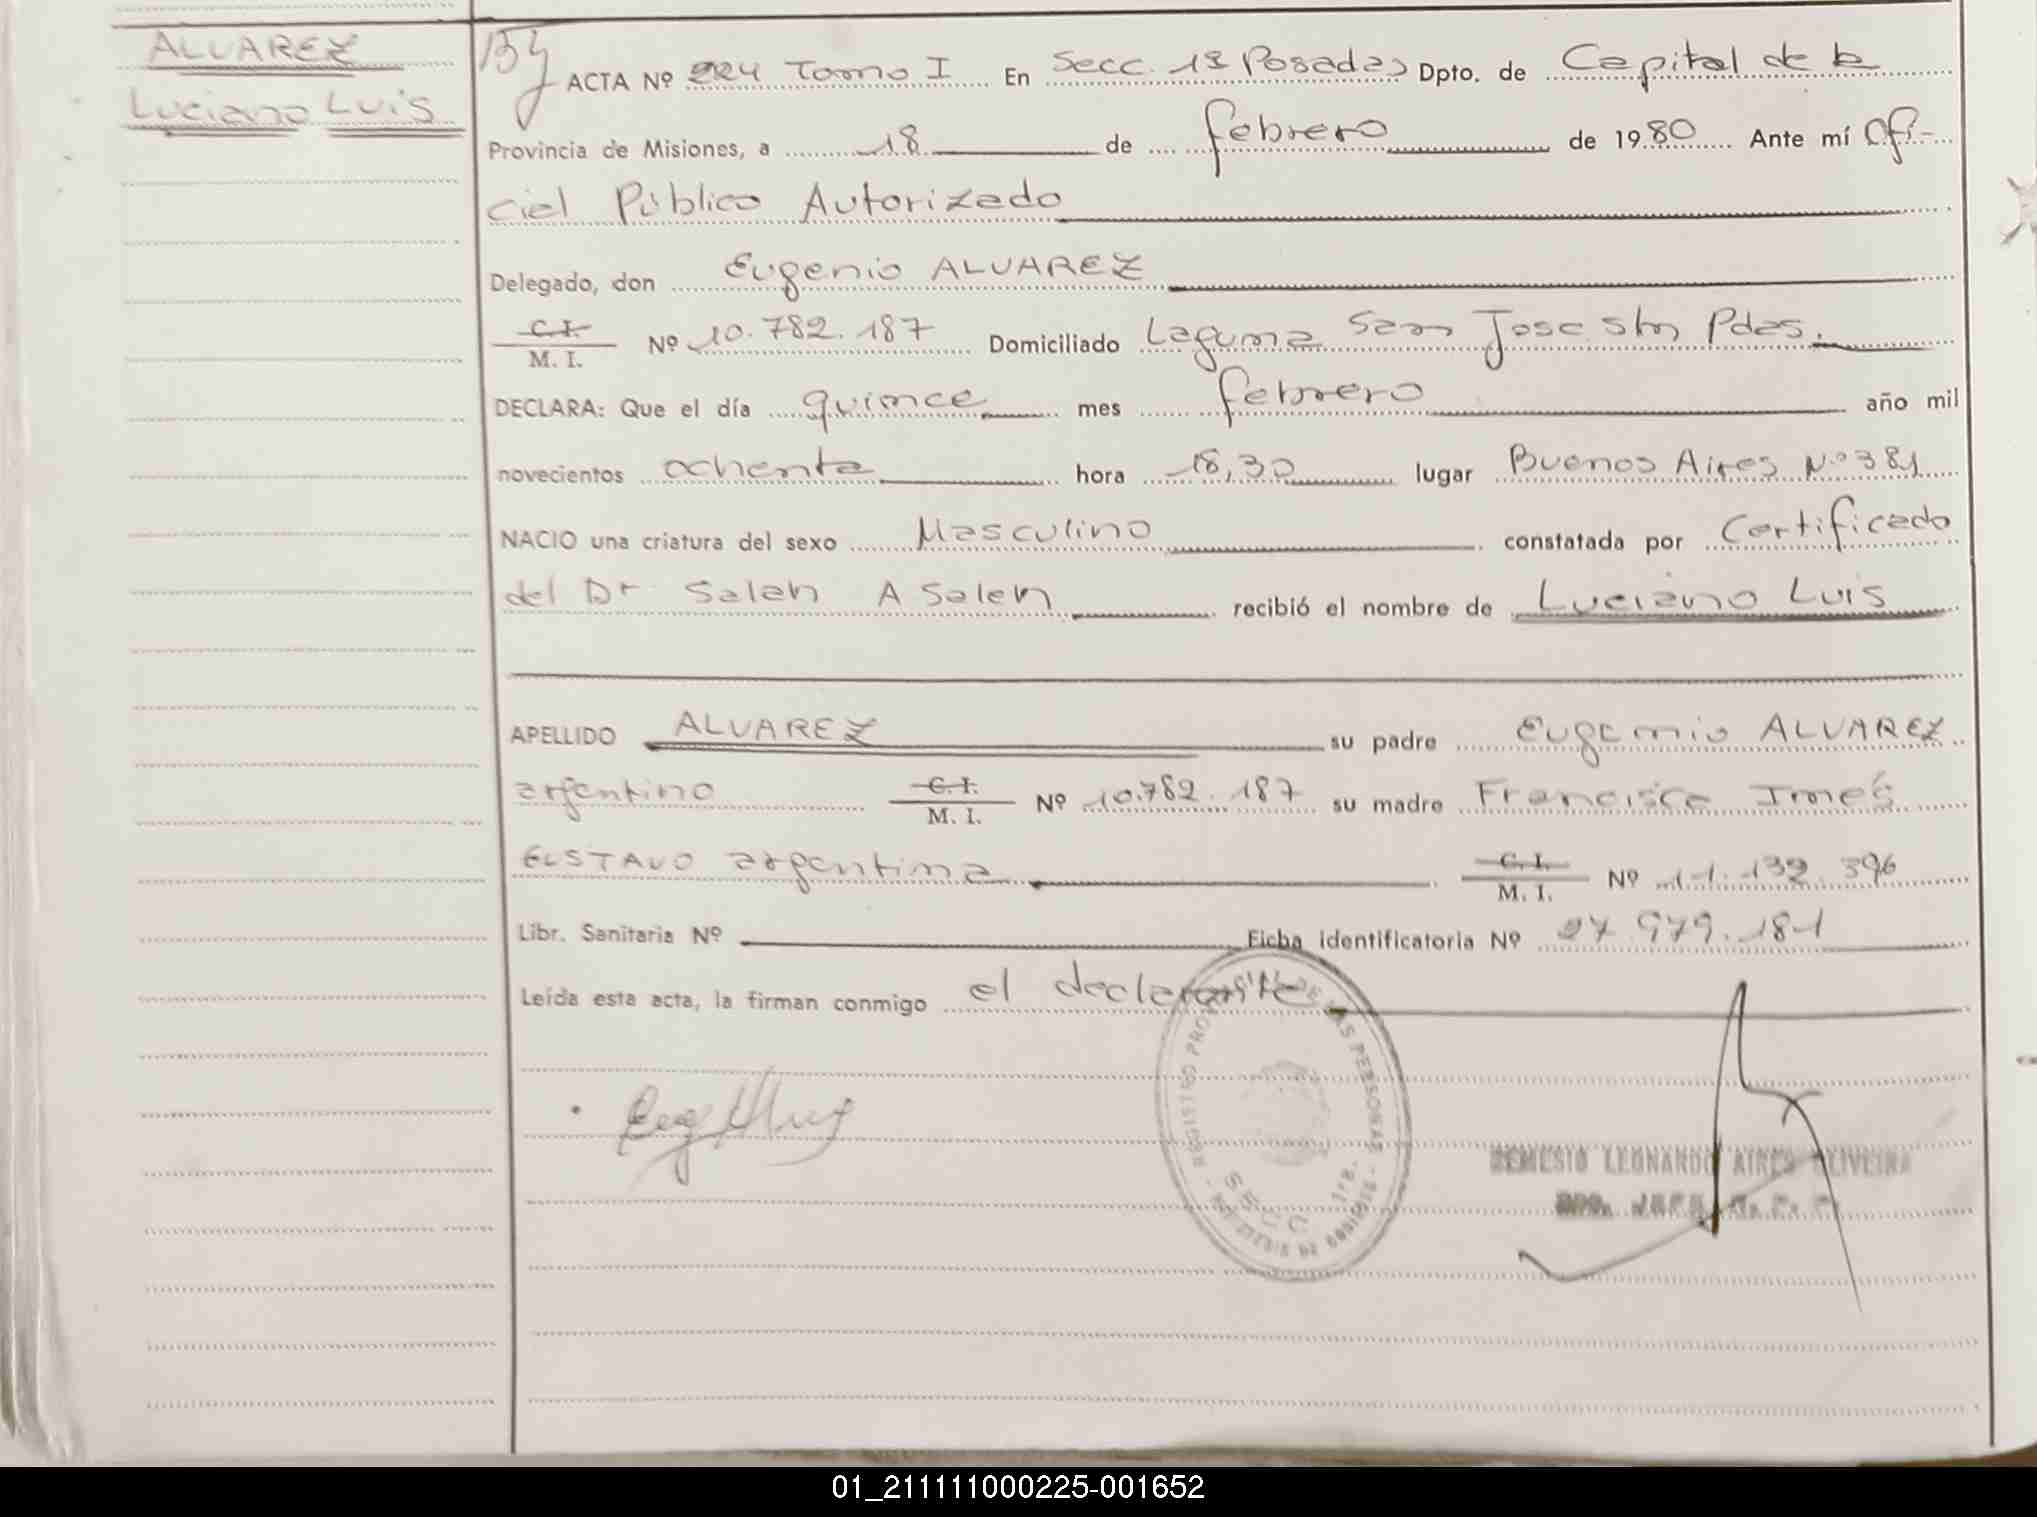 ALVAREZ
Luciano Luis
154
ACTA Nº 224 Tomo I En Secc. 1ª Posadas Dpto. de Capital de la
Provincia de Misiones, a 18 de febrero de 1980 Ante mí Ofi-
cial Público Autorizado
Delegado, don Eugenio ALVAREZ
C.I.
M. I. Nº 10.782.187 Domiciliado Laguna San Jose s/n Pdas.
DECLARA: Que el día quince mes febrero año mil
novecientos ochenta hora 18,30 lugar Buenos Aires Nº 381
NACIO una criatura del sexo Masculino constatada por Certificado
del Dr Salen A Salen recibió el nombre de Luciano Luis
APELLIDO ALVAREZ su padre Eugenio ALVAREZ
argentino C.I.
M. I. Nº 10.782.187 su madre Francisca Inés
GUSTAVO argentina C.I.
M. I. Nº 11.132.396
Libr. Sanitaria Nº Ficha identificatoria Nº 27 979.181
Leída esta acta, la firman conmigo el declarante
REGISTRO PROV. DE LAS PERSONAS
SECC. 1ra.
LEONARDO AIRES OLIVEIRA
01_211111000225-001652